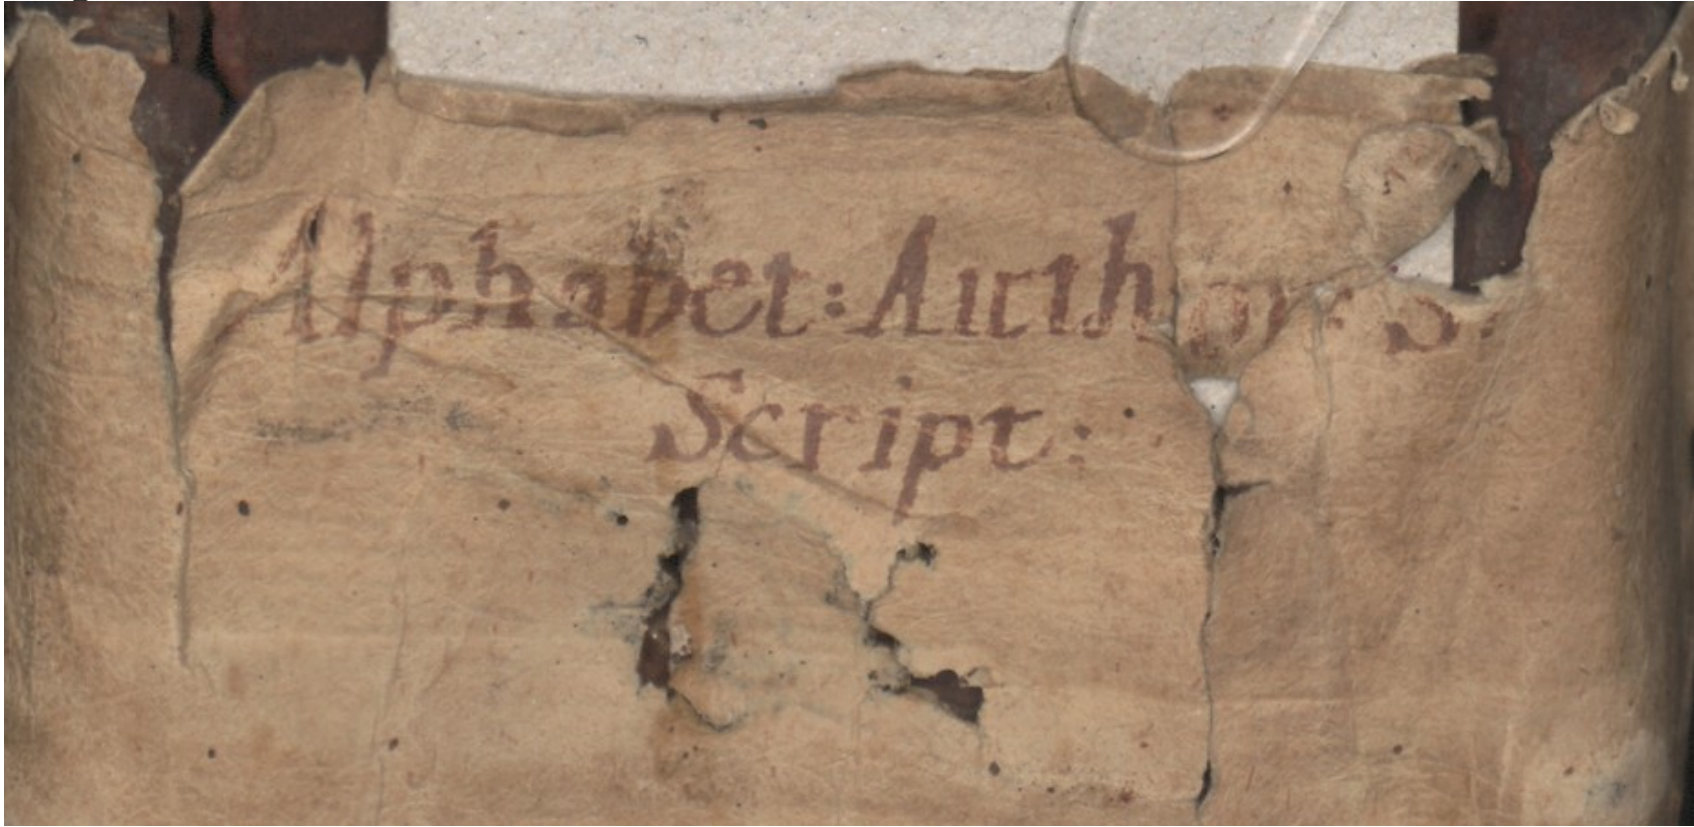 Alphabet: Authors.
Script: